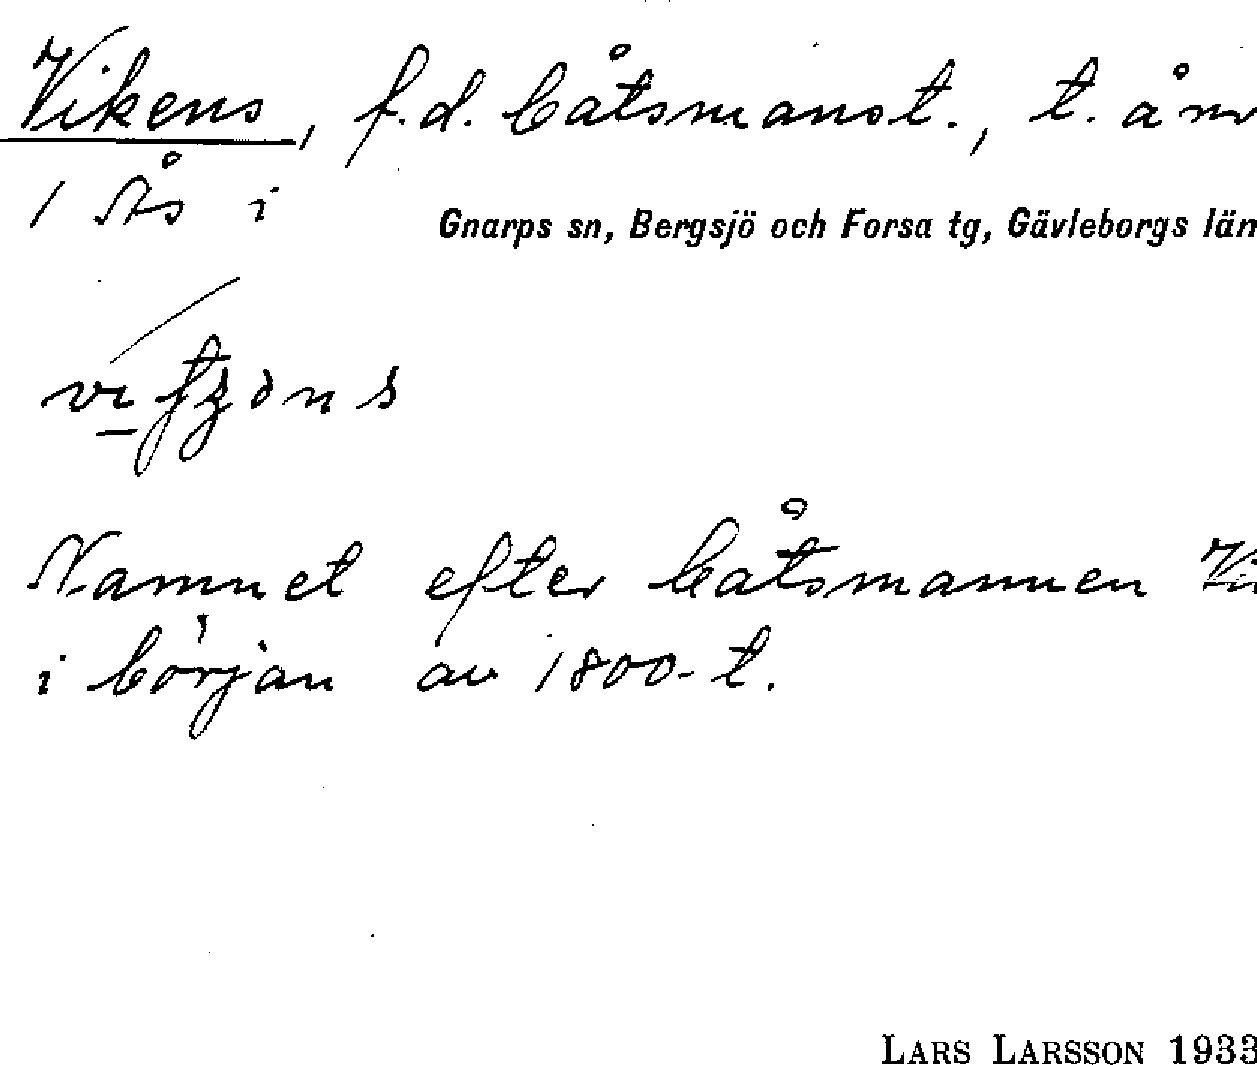 Vikens, f.d. båtsmanst., t. å nr
1 Ås i
Gnarps sn, Bergsjö och Forsa tg, Gävleborgs län
Namnet efter båtsmannen Vi
i början av 1800-t.
LARS LARSSON 1933